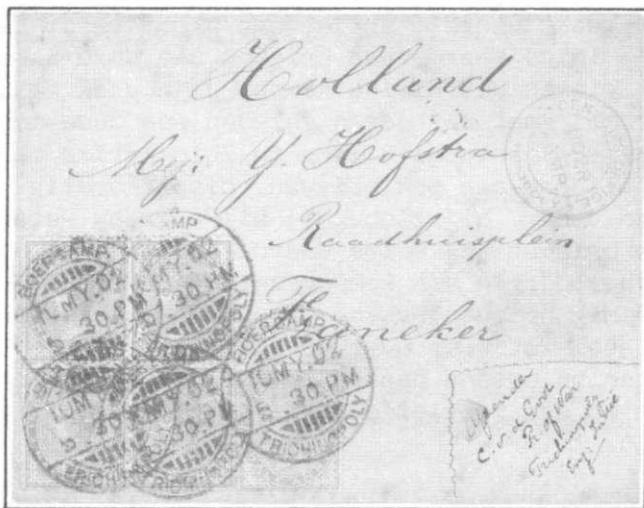 Holland
Mej: Y. Hofstra
Raadhuisplein
Franeker
BOER CAMP
10 MY. 02
5.30 PM
TRICHINOPOLY
BOER CAMP
MY. 02
.30 PM
TRICHINOPOLY
BOER CAMP
10 MY. 02
5.30 PM
TRICHINOPOLY
10 MY. 02
5.30 PM
TRICHINOPOLY
.30 PM
TRICHINOPOLY
Afzender
C. v. d.
P. of War
Trichinopoly
Eng: Indië